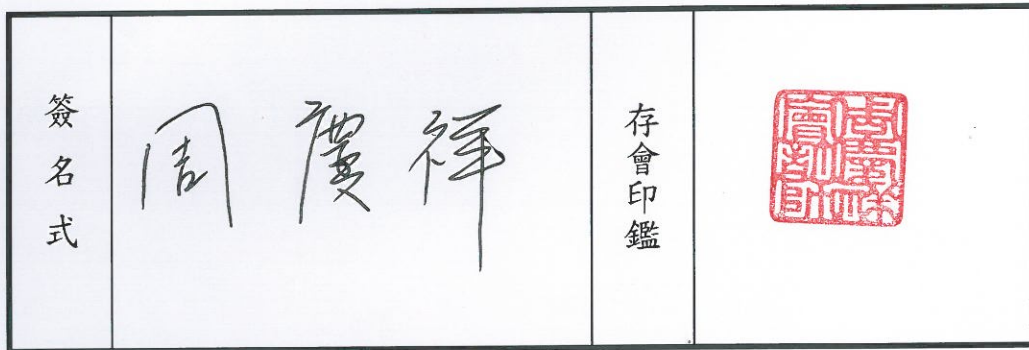 簽名式
周慶祥
存會印鑑